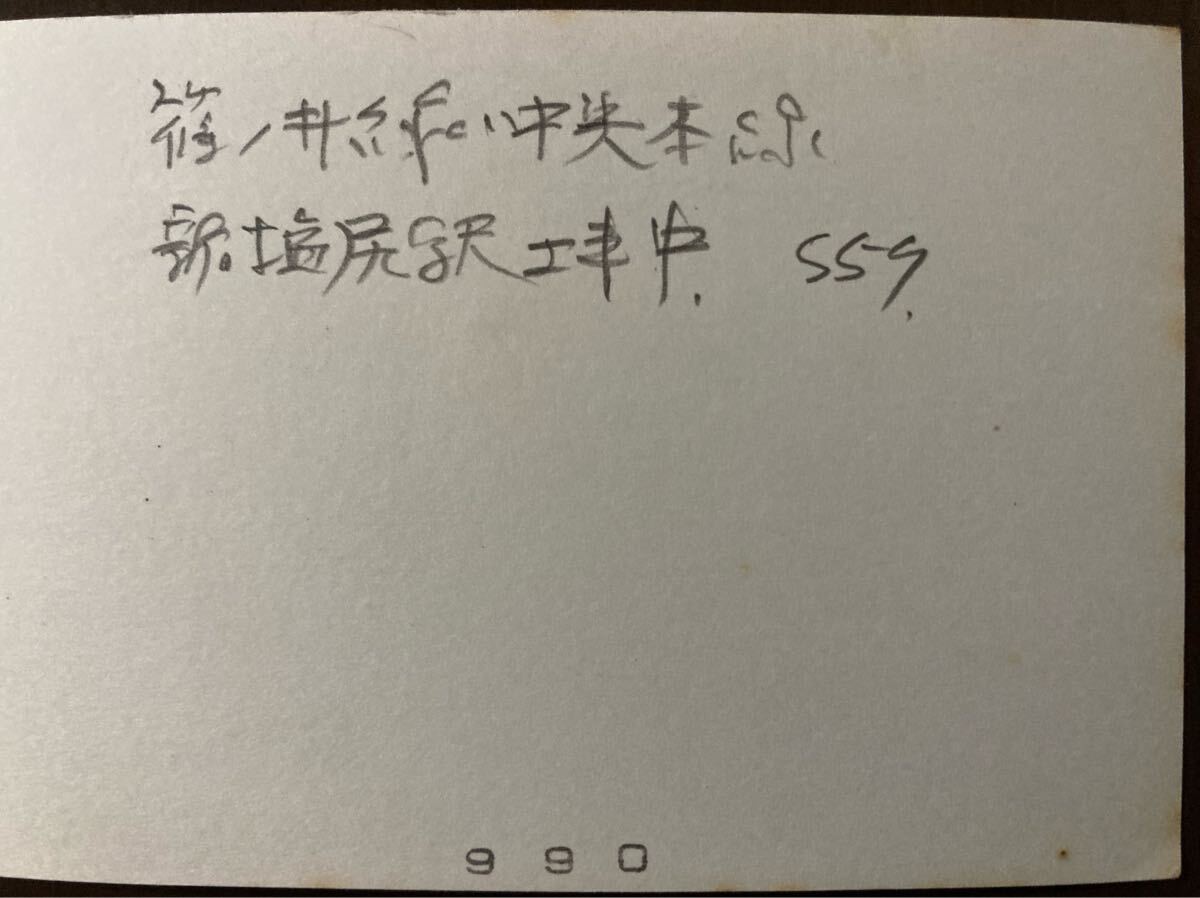 篠ノ井線い中央本線
新塩尻駅工事中. S59.
990